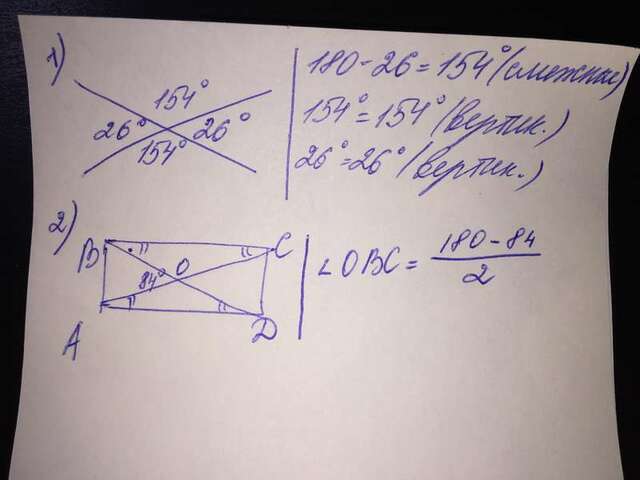 1)
154°
26° 26°
154°
180-26=154° (смежные)
154°=154° (вертик.)
26°=26° (вертик.)
2)
B C
84° O
A D
∠OBC = (180-84)/2